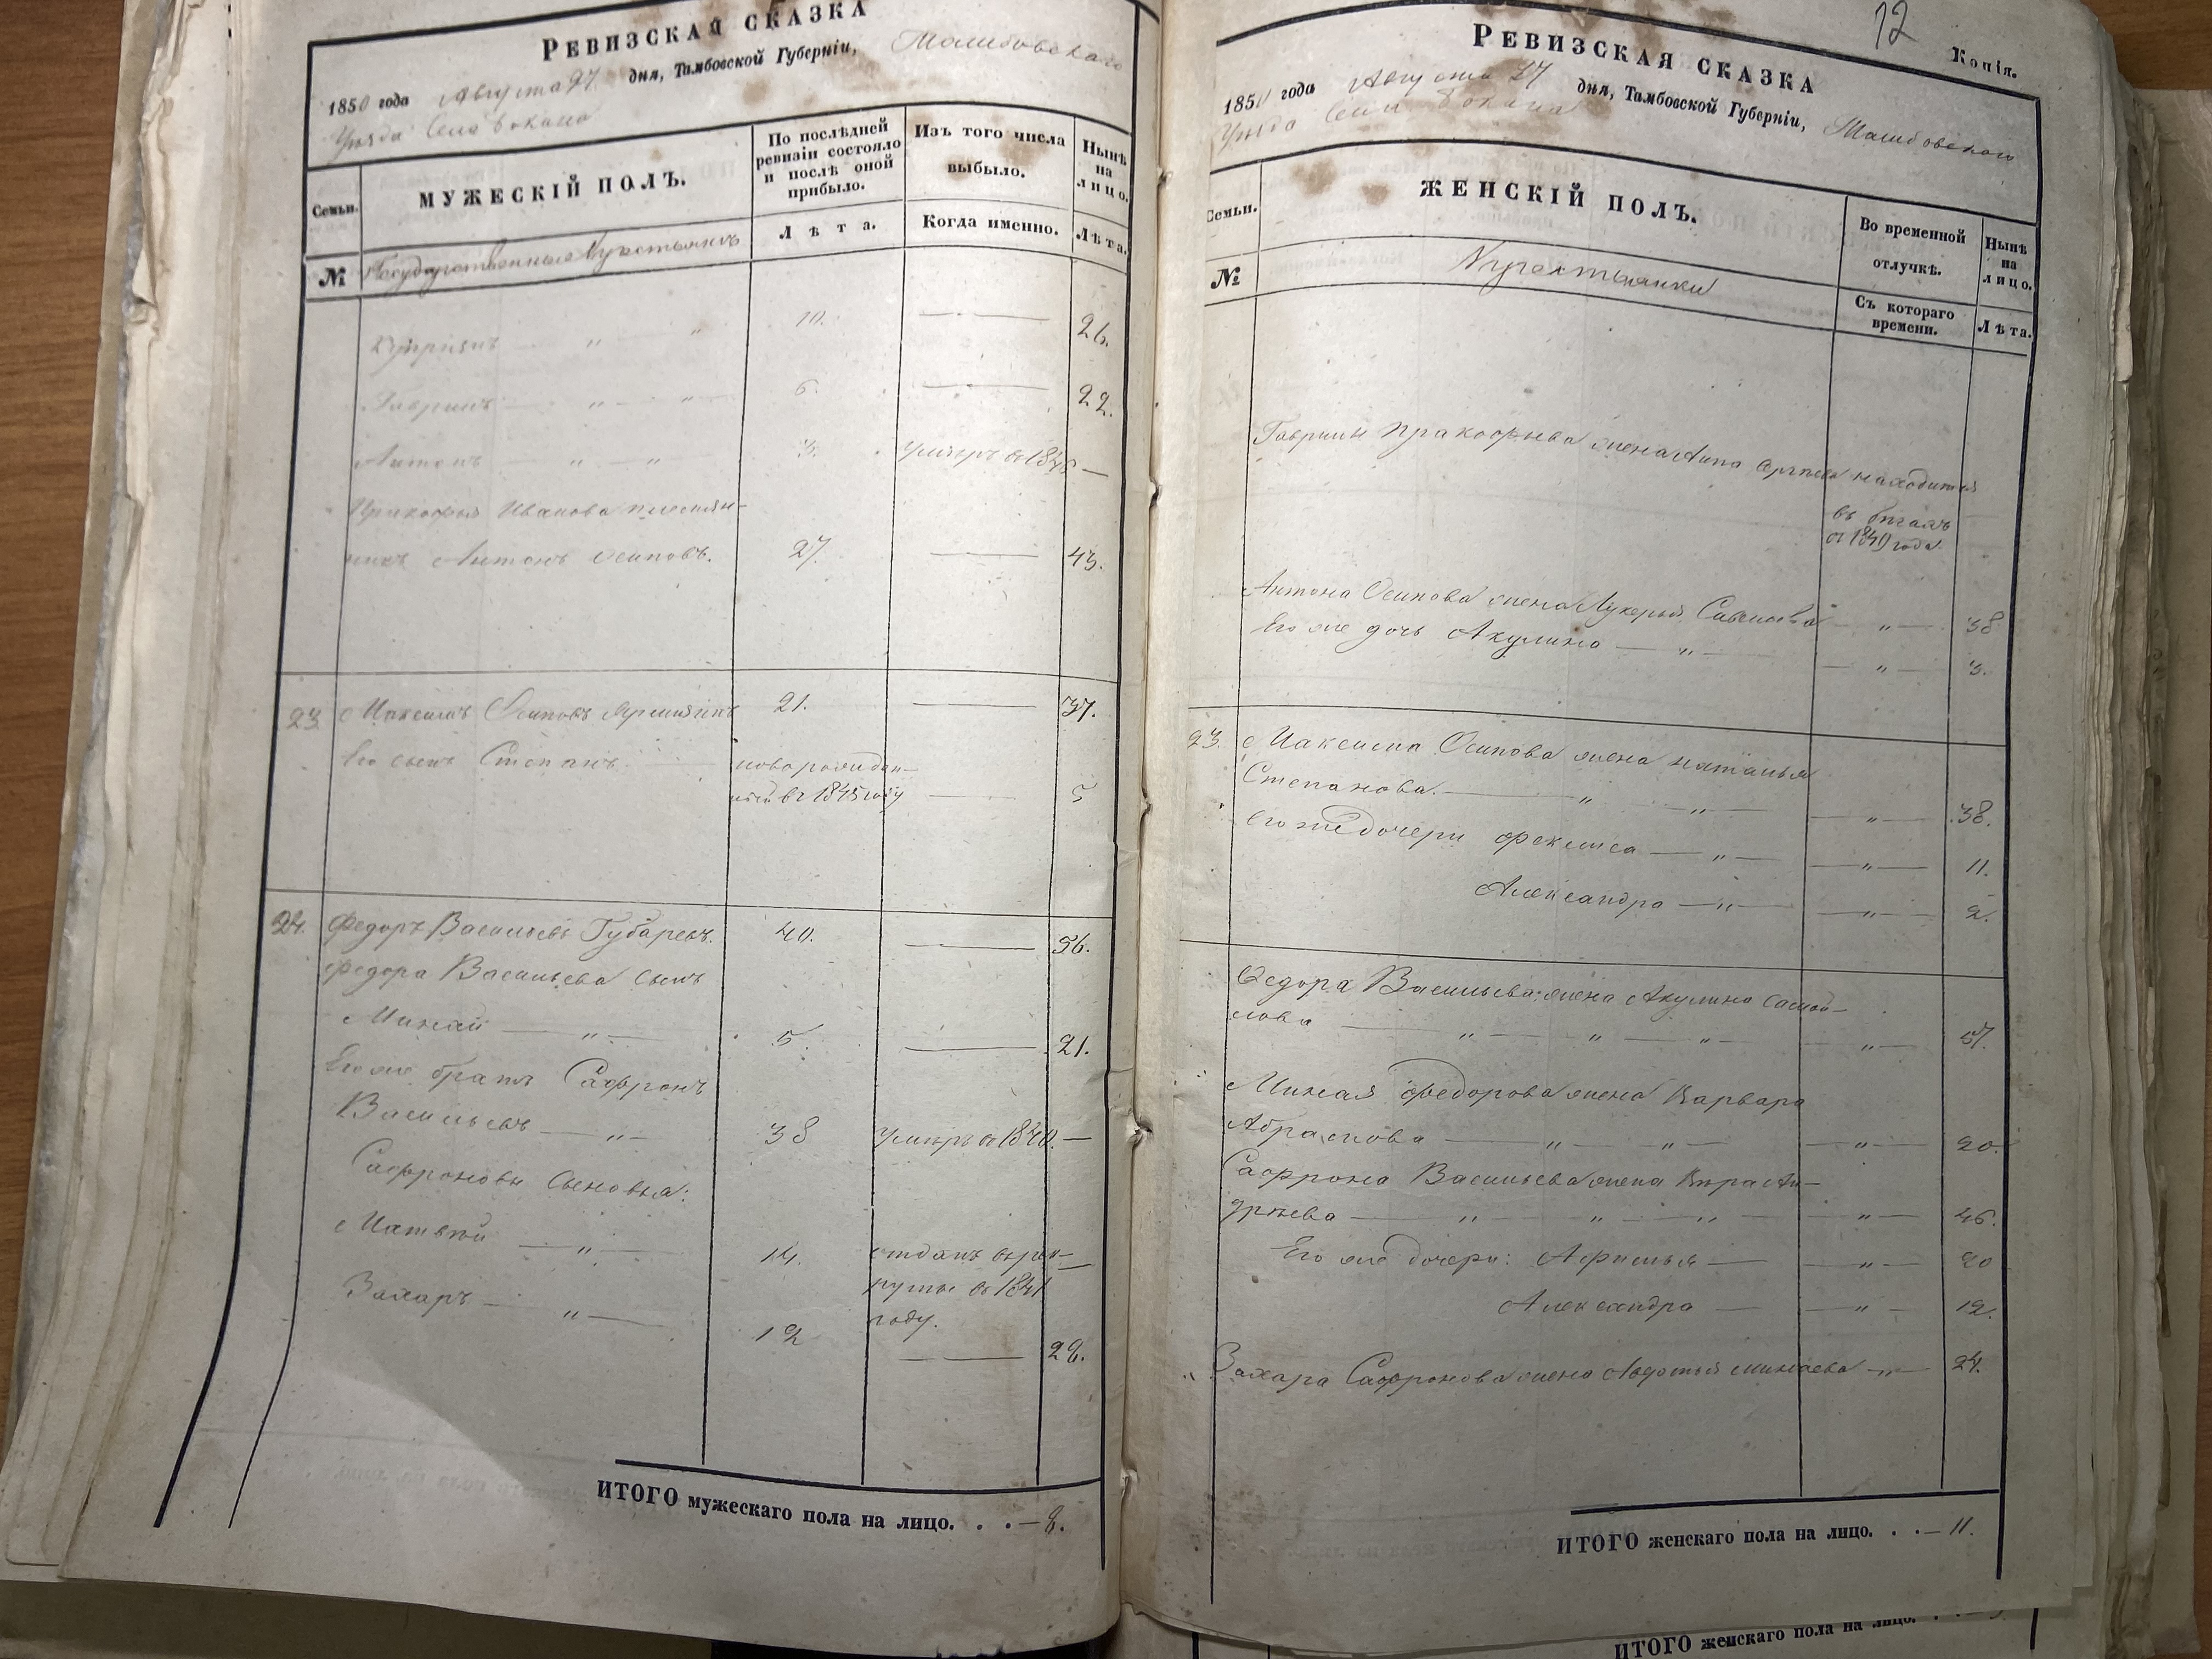 РЕВИЗСКАЯ СКАЗКА
1850 года Августа 27 дня, Тамбовской Губерніи, Тамбовскаго
Уѣзда Села
Семьи.
МУЖЕСКІЙ ПОЛЪ.
По послѣдней ревизіи состояло и послѣ оной прибыло.
Изъ того числа выбыло.
Нынѣ на лицо.
Лѣта.
Когда именно.
Лѣта.
№ Государственные Крестьяне
Купріянъ — „ „ 10. — — 26.
Гаврилъ — „ — „ — 6. — — 22.
Антонъ — „ — „ 3. Умѣръ въ 184 —
Пракофья Иванова племян-
никъ Антонъ Осиповъ. 27. — — 43.
23. Максимъ Осиповъ 21. — — 37.
Его сынъ Степанъ новорожден-
ный въ 1845 году — — 5
24. Федоръ Васильевъ Губаревъ. 40. — — 56.
Федора Васильева сынъ
Минай — „ — 5. — 21.
Его же братъ Сафронъ
Васильевъ — „ — 38 Умѣръ въ 1840. —
Сафроновы сыновья:
Матвѣй — „ — 14. отданъ въ рек-
руты въ 1841
году.
Захаръ — „ — 12 — — 28.
ИТОГО мужескаго пола на лицо. . . — 8.
72
Копія.
РЕВИЗСКАЯ СКАЗКА
1850 года Августа 27 дня, Тамбовской Губерніи, Тамбовскаго
Уѣзда Села
Семьи.
ЖЕНСКІЙ ПОЛЪ.
Во временной отлучкѣ.
Нынѣ на лицо.
Съ котораго времени.
Лѣта.
№ Крестьянки
Гаврилы Пракофьева жена Анна Сергѣева находится
въ бѣгахъ
съ 1849 года
Антона Осипова жена Лукерья Савельева — „ — 38
Его же дочь Акулина — „ — — „ — 3.
23. Максима Осипова жена Наталья
Степанова. — „ — „ — — „ — 38.
Его же дочери Фекlиса — „ — — „ — 11.
Александра — „ — — „ — 2.
Федора Васильева жена Акулина Самой-
лова — „ — „ — „ — — „ — 57.
Миная Федорова жена Варвара
Абрамова — „ — „ — — „ — 20.
Сафрона Васильева жена Вѣра Ан-
дрѣева — „ — „ — „ — „ — 46.
Его же дочери: Афимья — — „ — 20
Александра — — „ — 12.
Захара Сафронова жена Авдотья Минаева — „ — 24.
ИТОГО женскаго пола на лицо. . . — 11.
ИТОГО женскаго пола на лицо.